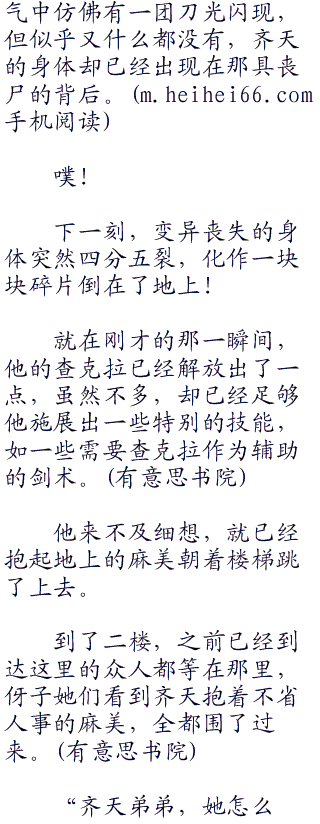 气中仿佛有一团刀光闪现，
但似乎又什么都没有，齐天
的身体却已经出现在那具丧
尸的背后。(m.heihei66.com
手机阅读)
噗！
下一刻，变异丧失的身
体突然四分五裂，化作一块
块碎片倒在了地上！
就在刚才的那一瞬间，
他的查克拉已经解放出了一
点，虽然不多，却已经足够
他施展出一些特别的技能，
如一些需要查克拉作为辅助
的剑术。(有意思书院)
他来不及细想，就已经
抱起地上的麻美朝着楼梯跳
了上去。
到了二楼，之前已经到
达这里的众人都等在那里，
伢子她们看到齐天抱着不省
人事的麻美，全都围了过
来。(有意思书院)
“齐天弟弟，她怎么